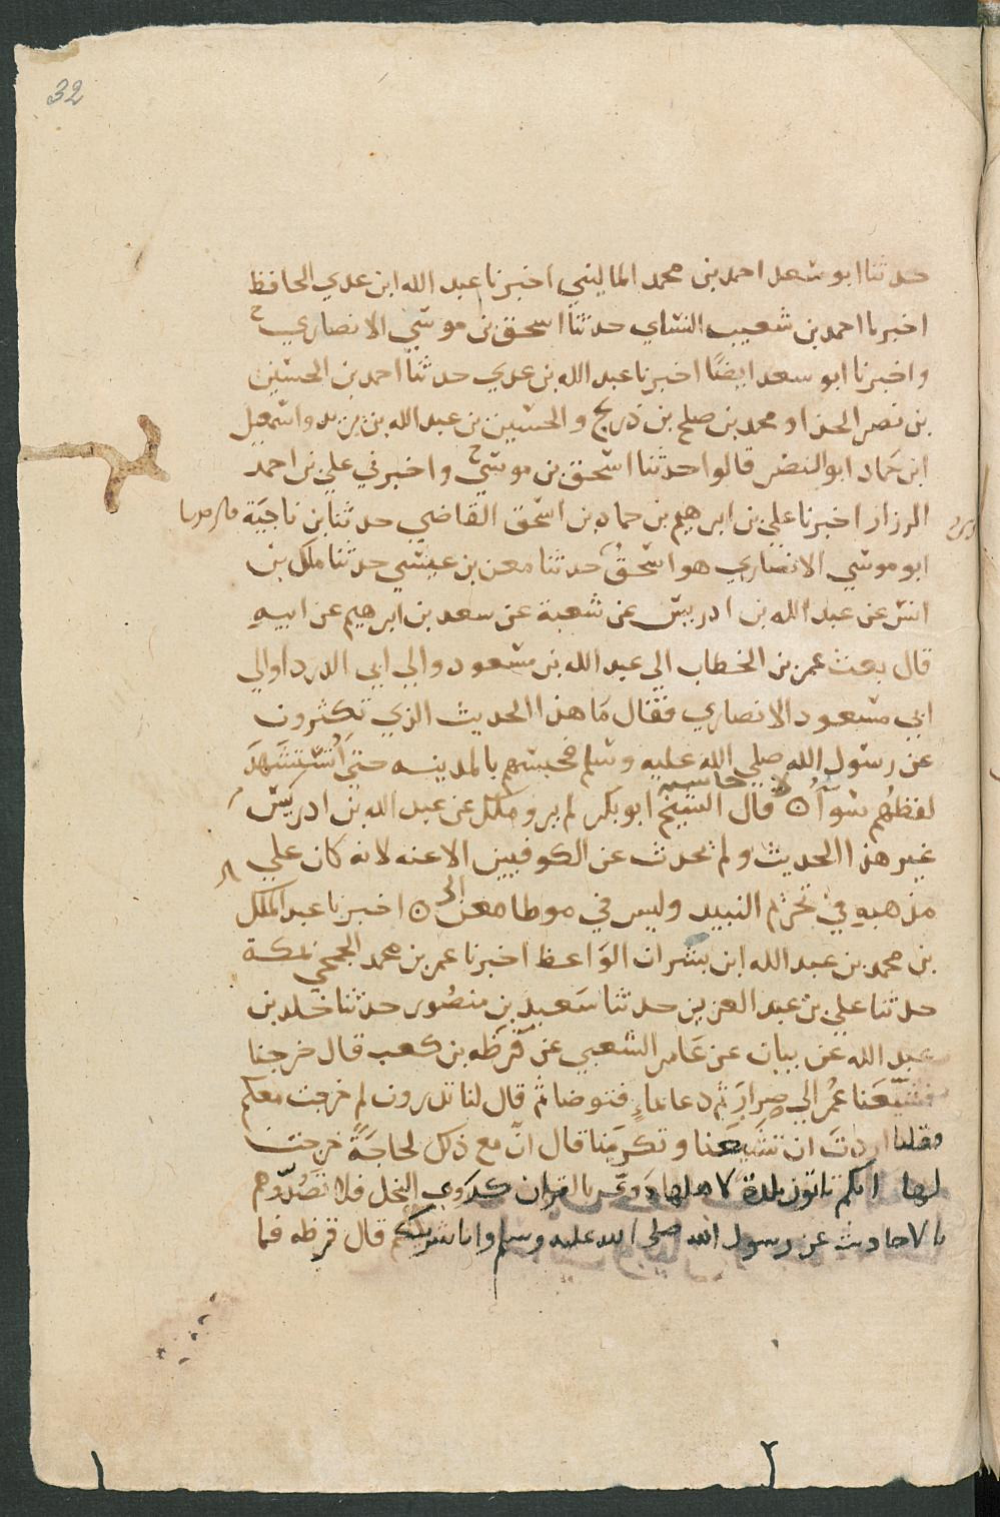 32
حدثنا ابو سعد احمد بن محمد الماليني اخبرنا عبد الله ابن عدي الحافظ
اخبرنا احمد بن شعيب النساي حدثنا اسحق بن موسي الانصاري ح
واخبرنا ابو سعد ايضًا اخبرنا عبد الله بن عدي حدثنا احمد بن الحسين
بن نصر الحذاو محمد بن صلح بن ذريح والحسين بن عبد الله بن يزيد واسمعيل
ابن حماد ابو النضر قالوا حدثنا اسحق بن موسي ح واخبرني علي بن احمد
الرزاز اخبرنا علي بن ابرهيم بن حماد بن اسحق القاضي حدثنا بن ناجية
ابو موسي الانصاري هو اسحق حدثنا معن بن عيسي حدثنا ملك بن
انس عن عبد الله بن ادريس عن شعبة عن سعد بن ابرهيم عن ابيه
قال بعث عمر بن الخطاب الي عبد الله بن مسعود والي ابي الدرداوالي
ابي مسعود الانصاري فقال مَا هذا الحديث الذي تكثرون
عن رسول الله صلي الله عليه وسلم فحبسهم بالمدينه حتي استشهدَ
لفظهُم سَوآُ ن قال الشيخ ابو بكر لم يرو ملك عن عبد الله بن ادريس
غير هذا الحديث ولم يحدث عن الكوفيين الا عنه لانه كان علي
مذهبهِ في تحريم النبيد وليس في موطا معن ن اخبرنا عبد الملك
بن محمد بن عبد الله ابن بشران الوَاعظ اخبرنا عمر بن محمد الجمحي بمكة
حدثنا علي بن عبد العزيز حدثنا سَعيد بن منصُور حدثنا خلد بن
عبد الله عن بيان عن عَامر الشعبي عن قرَظه بن كعب قال خرجنا
فشيّعَنا عمُر الي صِرارَ ثم دعا بماءٍ فتوضا ثم قال لنا تدرون لم خرجت معكم
فقلنا اردتَ ان تشيعَنا وتكرمَنا قال انّ مع ذلك لحاجَةً خرجتُ
لها انكم تاتون بلدة لاهلها دَوي بالقران كدَوي النحل فلا تصُدّوهم
بالاحاديث عن رسول الله صلى الله عليه وسلم وانا شريككم قال قرظه فما